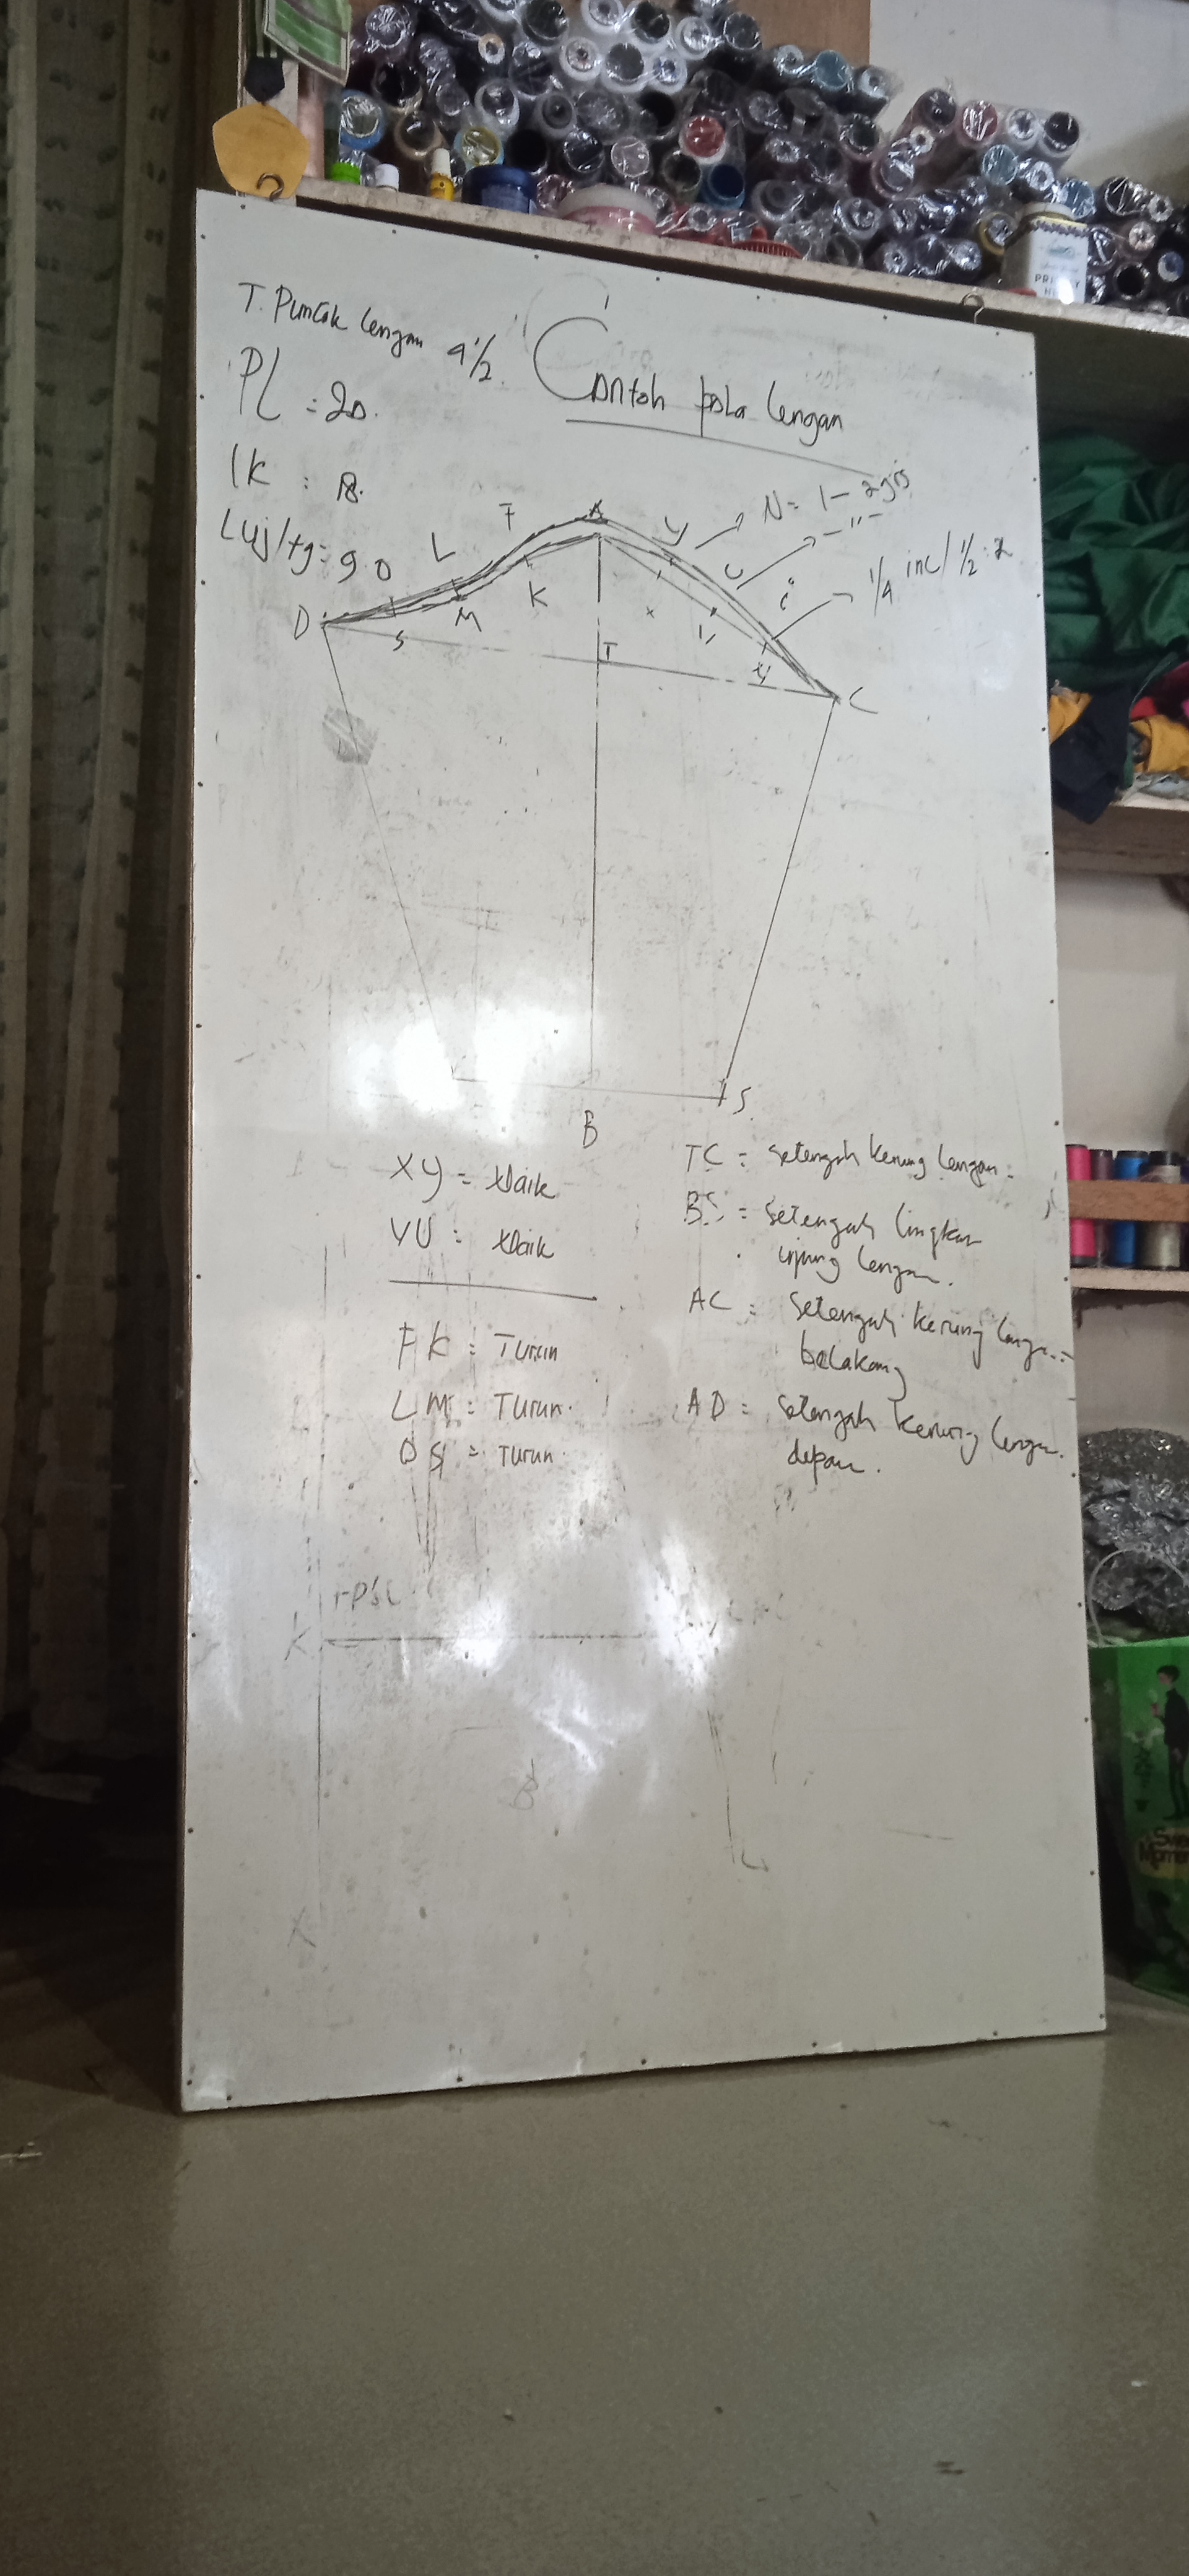 T. Puncak lengan 4 1/2
Contoh pola lengan
PL = 20.
lk : 18.
Luj/tg = 9
N = 1 - 2 grs
- " -
1/4 inc / 1/2 : 2
A
F
y
L
U
O
i
K
D
M
S
x
V
T
C
B
S
XY = Naik
VU : Naik
FK : Turun
LM : Turun.
OS = Turun.
TC = setengah kerung lengan.
BS = setengah lingkar
ujung lengan.
AC = Setengah kerung lengan
belakang
AD = setengah kerung lengan
depan.
K
B
PRI